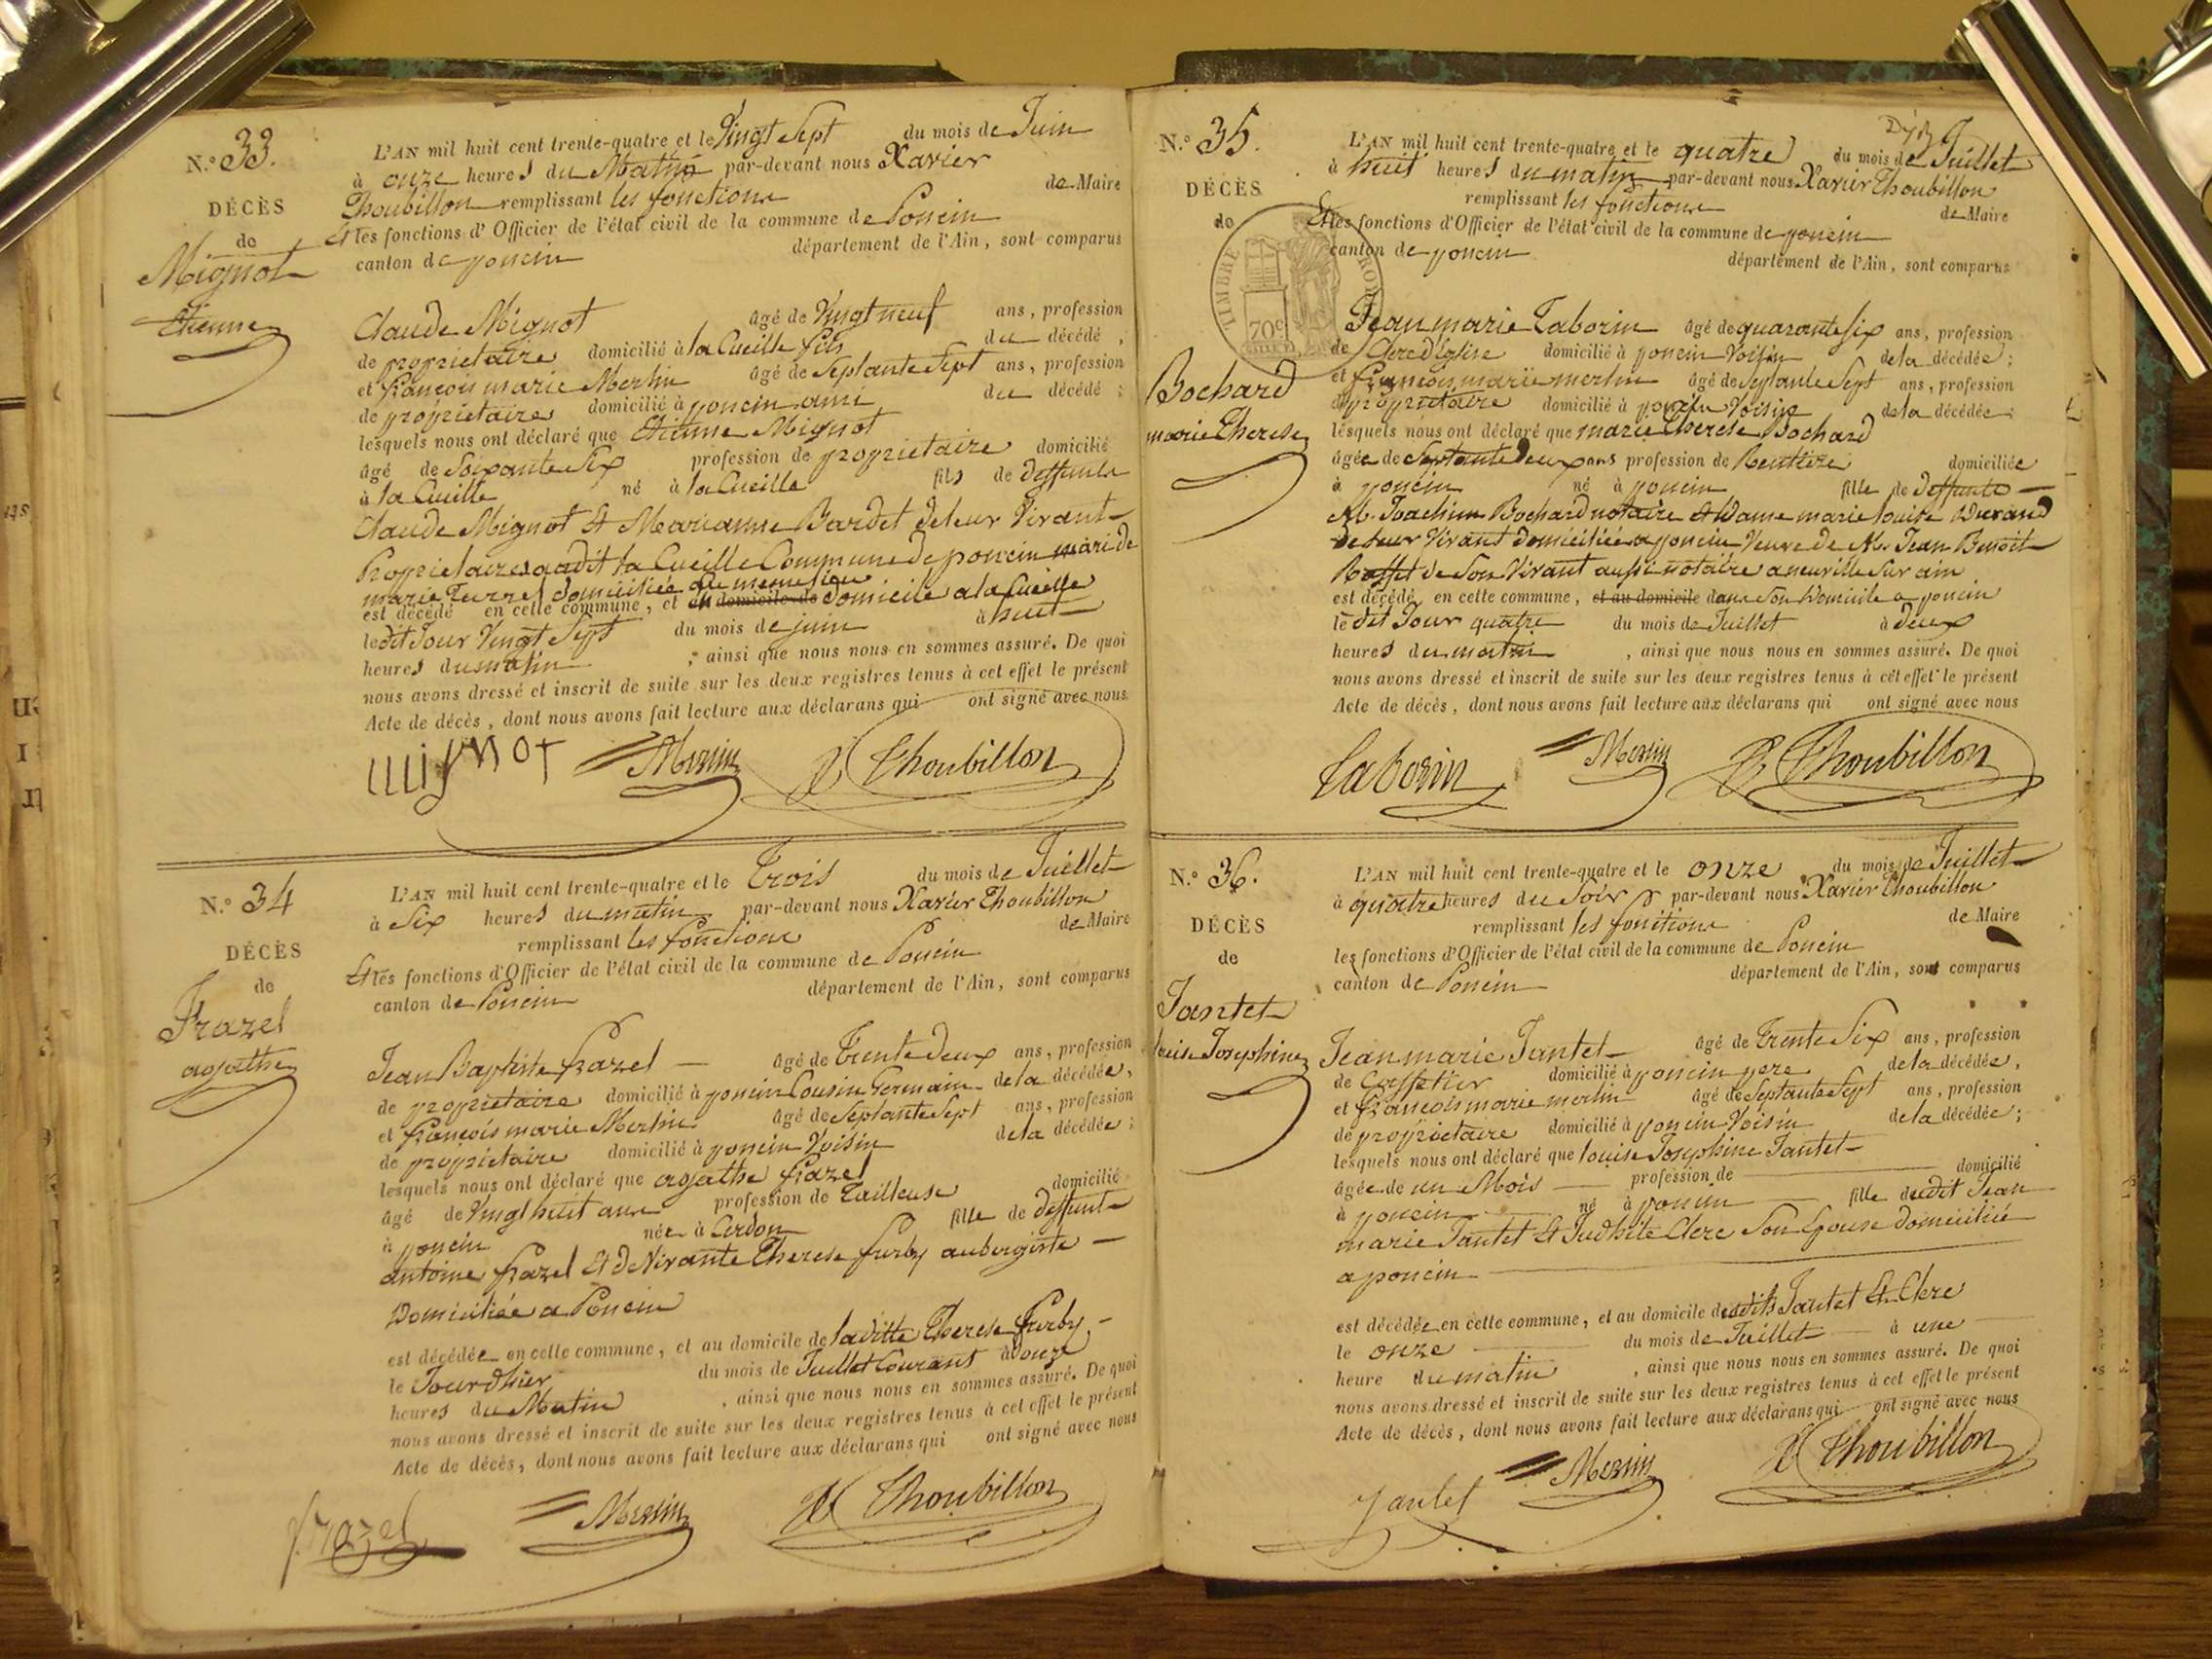 N.º 33.
DÉCÈS
de
Mignot
Etienne
L'AN mil huit cent trente-quatre et le Vingt Sept du mois de Juin
à onze heures du Matin par-devant nous Xavier
Thoubillon remplissant les fonctions de Maire
Et les fonctions d'Officier de l'état civil de la commune de Poncin
canton de poncin département de l'Ain, sont comparus
Claude Mignot âgé de Vingt neuf ans, profession
de propriétaire domicilié à la Cueille fils du décédé,
et françois marie Merlin âgé de Septante Sept ans, profession
de propriétaire domicilié à poncin ami du décédé;
lesquels nous ont déclaré que Etienne Mignot
âgé de Soixante Six profession de propriétaire domicilié
à la Cueille né à la Cueille fils de deffunts
Claude Mignot Et Marianne Bardet de leur Vivant
Propriétaires audit la Cueille Commune de poncin mari de
marie domiciliée au meme lieu
est décédé en cette commune, et en domicile de domicile a la Cueille
le dit Jour Vingt Sept du mois de juin à huit
heures du matin, ainsi que nous nous en sommes assuré. De quoi
nous avons dressé et inscrit de suite sur les deux registres tenus à cet effet le présent
Acte de décès, dont nous avons fait lecture aux déclarans qui ont signé avec nous
mignot Merlin X Thoubillon
N.º 34
DÉCÈS
de
Frazel
agathe
L'AN mil huit cent trente-quatre et le Trois du mois de Juillet
à Six heures du matin par-devant nous Xavier Thoubillon
remplissant les fonctions de Maire
Et les fonctions d'Officier de l'état civil de la commune de Poncin
canton de Poncin département de l'Ain, sont comparus
Jean Baptiste frazel âgé de Trente deux ans, profession
de propriétaire domicilié à poncin Cousin Germain de la décédée,
et françois marie Merlin âgé de Septante Sept ans, profession
de propriétaire domicilié à poncin Voisin de la décédée;
lesquels nous ont déclaré que agathe frazel
âgé de Vingt huit ans profession de Tailleuse domicilié
à poncin née à Cerdon fille de deffunt
antoine frazel Et de Vivante Therese furby aubergiste
Domiciliée a Poncin
est décédée en cette commune, et au domicile de laditte Therese furby
le Jour d'hier du mois de Juillet Courant à onze
heures du Matin, ainsi que nous nous en sommes assuré. De quoi
nous avons dressé et inscrit de suite sur les deux registres tenus à cet effet le présent
Acte de décès, dont nous avons fait lecture aux déclarans qui ont signé avec nous
frazel Merlin X Thoubillon
N.º 35.
DÉCÈS
de
TIMBRE ROYAL
70c
Bochard
marie Therese
L'AN mil huit cent trente-quatre et le quatre du mois de Juillet
à huit heures du matin par-devant nous Xavier Thoubillon
remplissant les fonctions de Maire
Et les fonctions d'Officier de l'état civil de la commune de poncin
canton de poncin département de l'Ain, sont comparus
Jean marie Taborin âgé de quarante six ans, profession
de Clerc d'Eglise domicilié à poncin Voisin de la décédée;
et françois marie merlin âgé de Septante Sept ans, profession
de propriétaire domicilié à poncin Voisin de la décédée;
lesquels nous ont déclaré que marie Therese Bochard
âgée de Septante deux ans profession de Rentiere domiciliée
à poncin né à poncin fille de deffunts
M. Joachim Bochard notaire et Dame marie louise Durand
de leur Vivant domiciliés a poncin Veuve de M. Jean Benoit
Rosset de Son Vivant aussi notaire a neuville sur ain
est décédée en cette commune, et au domicile dans Son Domicile a poncin
le dit Jour quatre du mois de Juillet à deux
heures du matin, ainsi que nous nous en sommes assuré. De quoi
nous avons dressé et inscrit de suite sur les deux registres tenus à cet effet le présent
Acte de décès, dont nous avons fait lecture aux déclarans qui ont signé avec nous
Taborin Merlin X Thoubillon
N.º 36.
DÉCÈS
de
Jantet
louise Josephine
L'AN mil huit cent trente-quatre et le onze du mois de Juillet
à quatre heures du Soir par-devant nous Xavier Thoubillon
remplissant les fonctions de Maire
les fonctions d'Officier de l'état civil de la commune de Poncin
canton de Poncin département de l'Ain, sont comparus
Jean marie Jantet âgé de Trente Six ans, profession
de Caffetier domicilié à poncin pere de la décédée,
et françois marie merlin âgé de Septante Sept ans, profession
de propriétaire domicilié à poncin Voisin de la décédée;
lesquels nous ont déclaré que louise Josephine Jantet
âgée de un Mois profession de domicilié
à poncin né à poncin fille dudit Jean
marie Jantet Et Judhite Clerc Son Epouse domiciliés
a poncin
est décédée en cette commune, et au domicile desdits Jantet Et Clerc
le onze du mois de Juillet à une
heure du matin, ainsi que nous nous en sommes assuré. De quoi
nous avons dressé et inscrit de suite sur les deux registres tenus à cet effet le présent
Acte de décès, dont nous avons fait lecture aux déclarans qui ont signé avec nous
Jantet Merlin X Thoubillon